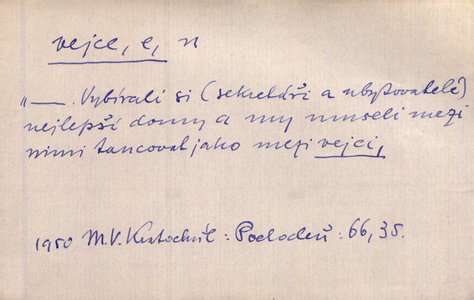 vejce, e, n
„—. Vybírali si (sekretáři a ubytovatelé)
nejlepší domy a my museli mezi
nimi tancovat jako mezi vejci,
1950 M.V. Kratochvíl: Podoben: 66, 35.